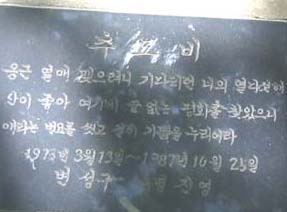 추 모 비
영근 열매 맺으려니 기다리던 너의 열아홉해
산이 좋아 여기에 끝 없는 평화를 찾았으니
애타는 번뇌를 씻고 기쁨을 누리어라
1973년 3월13일~1987년 10월 25일
변 성구 변 진영